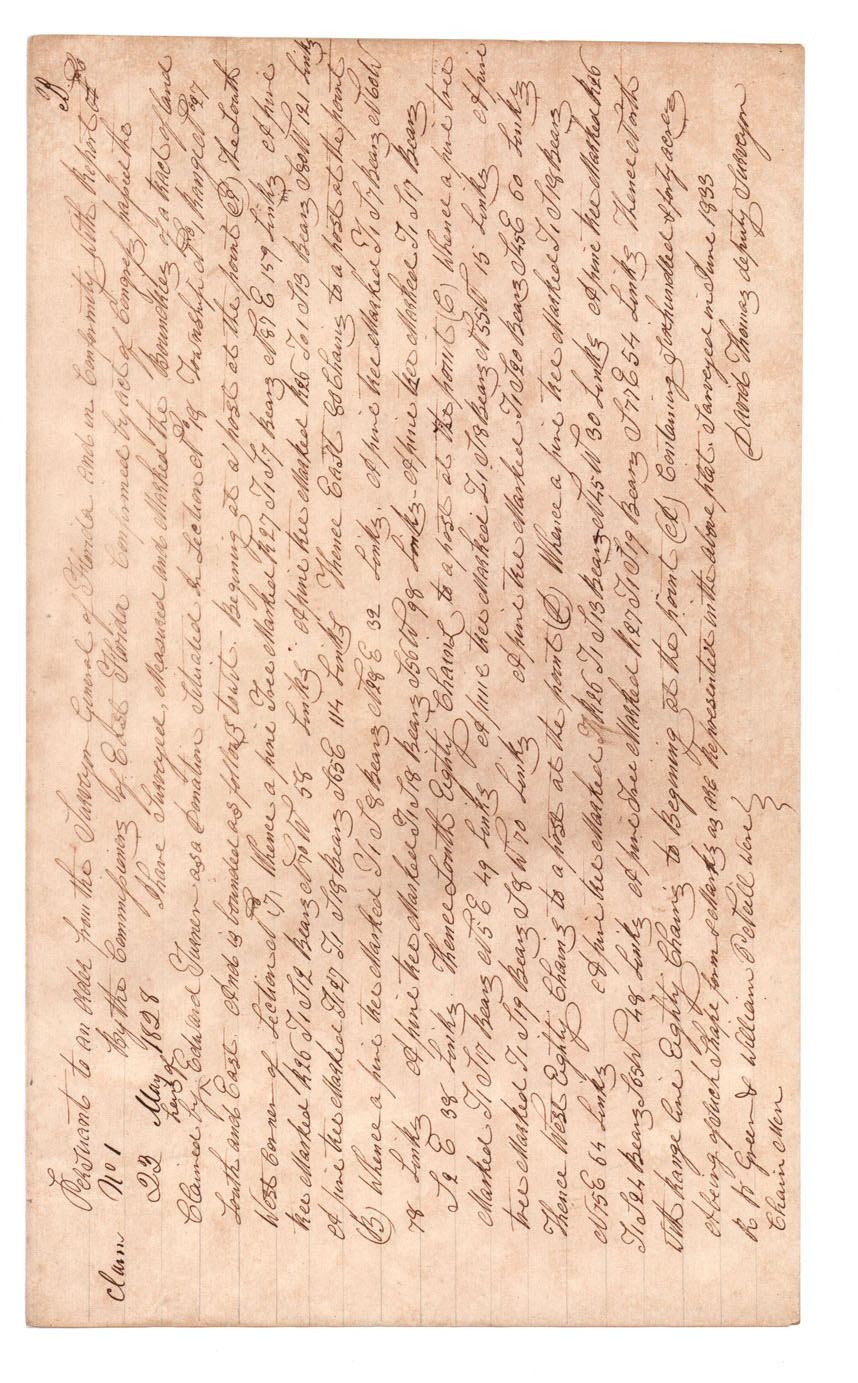 B
Persuant to an order from the Surveyor General of Florida And in Conformity with Report No
Claim No 1 by the Commissioners of East Florida Confirmed by act of Congress passed the
23 May 1828 I have Surveyed, Measured and Marked the Boundries of a tract of land
heirs of
Claimed by Edward Turner as a Donation Situated in Section No 18 Township No 1, Range No 27
South and East And is bounded as follows to wit. Begining at a post at the point (A) The South
West Corner of Section No 7, Whence a pine Tree Marked R27 T1 S7 Bears N57 E 159 Links A pine
tree Marked R26 T1 S12 Bears N70 W 58 Links A pine tree Marked R26 T1 S13 Bears S80 W 121 Links
A pine tree Marked R27 T1 S18 Bears S65 E 114 Links Thence East 80 Chains to a post at the point
(B) Whence a pine tree Marked T1 S8 Bears N28 E 32 Links, A pine tree Marked T1 S7 Bears N60 W
78 Links A pine tree Marked T1 S18 Bears S56 W 98 Links A pine tree Marked T1 S17 Bears
S2 E 38 Links Thence South Eighty Chains to a post at the point (C) Whence a pine tree
Marked T1 S17 Bears N5 E 49 Links A pine tree Marked T1 S18 Bears N55 W 15 Links A pine
tree Marked T1 S19 Bears S8 W 70 Links A pine tree Marked T1 S20 Bears S45 E 60 Links
Thence West Eighty Chains to a post at the point Whence a pine tree Marked T1 S18 Bears
N75 E 64 Links A pine tree Marked R26 T1 S13 Bears N45 W 30 Links A pine tree Marked R26
T1 S24 Bears S65 W 48 Links A pine Tree Marked R27 T1 S19 Bears S77 E 54 Links Thence North
With range line Eighty Chains to Begining at the point (A) Containing Sixhundred & forty acres
& being of such Shape form & Marks as are Represented in the above plat. Surveyed in June 1833
R B Green & William P Neill were David Thomas deputy Surveyor
Chain Men